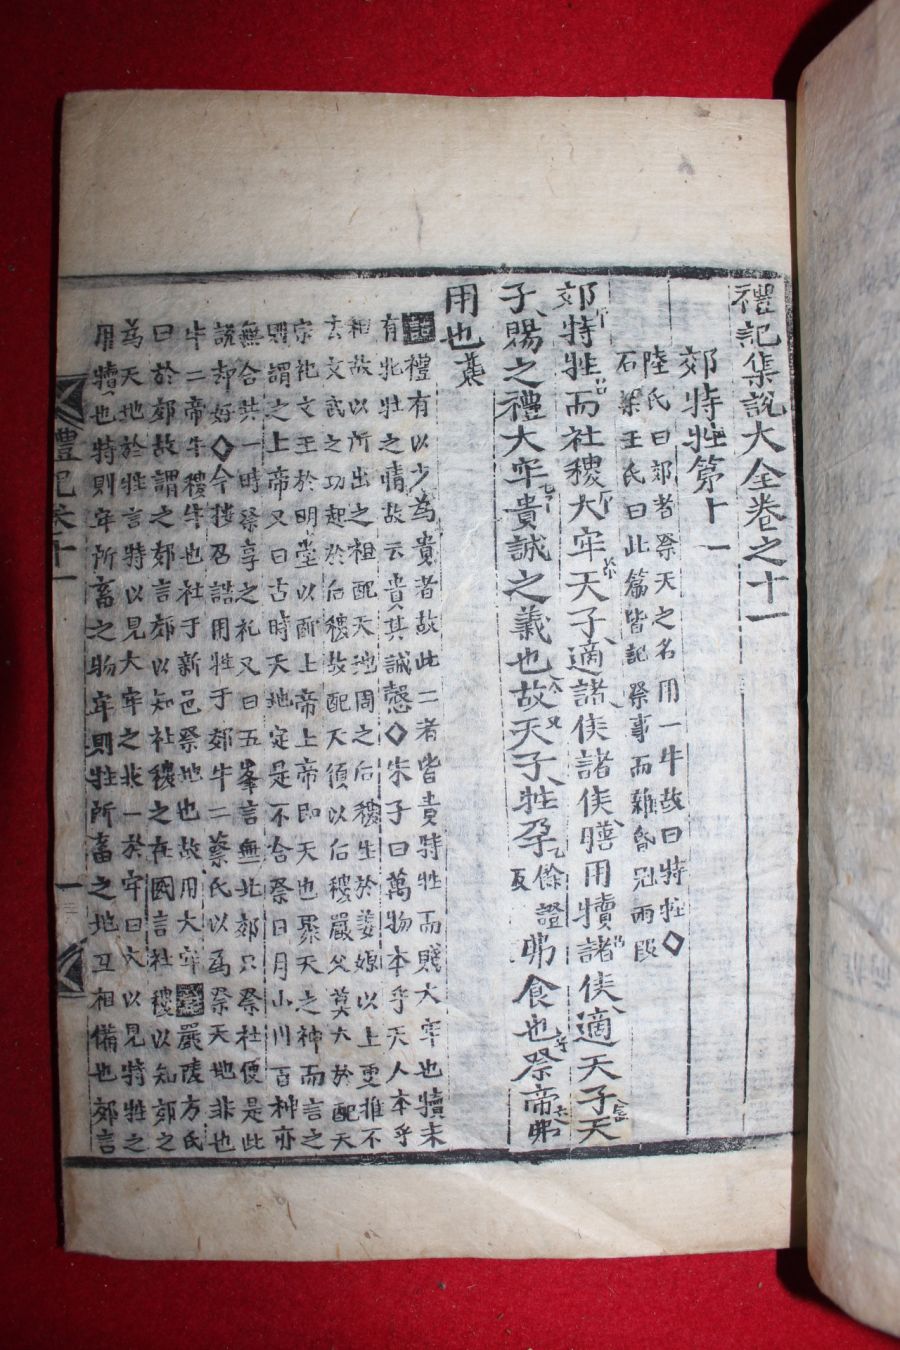 禮記集說大全卷之十一
郊特牲第十一
陸氏曰郊者祭天之名用一牛故曰特牲◇
石梁王氏曰此篇皆記祭事而雜昏冠兩段
郊特牲而社稷大牢天子適諸侯諸侯膳用犢諸侯適天子天
子賜之禮大牢貴誠之義也故天子牲孕餘證反弗食也祭帝弗
用也
禮有以少為貴者故此二者皆貴特牲而賤大牢也犢未
有牝牡之情故云貴其誠慤◇朱子曰萬物本乎天人本乎
祖故以所出之祖配天地周之后稷生於姜嫄以上更推不
去文武之功起於后稷故配天須以后稷嚴父莫大於配天
宗祀文王於明堂以配上帝上帝即天也聚天之神而言之
則謂之上帝又曰古時天地定是不合祭日月山川百神亦
無合共一時祭享之礼又曰五峯言無北郊只祭社便是此
說却好◇今按召誥用牲于郊牛二蔡氏以為祭天地非也
牛二帝牛稷牛也社于新邑祭地也故用大牢 嚴陵方氏
曰於郊故謂之郊言郊以知社稷之在國言社稷以知郊之
為天地於牲言特以見大牢之非一於牢曰大以見特牲之
用犢也特則牢所畜之物牢則牲所畜之地互相備也郊言
禮記卷十一
一